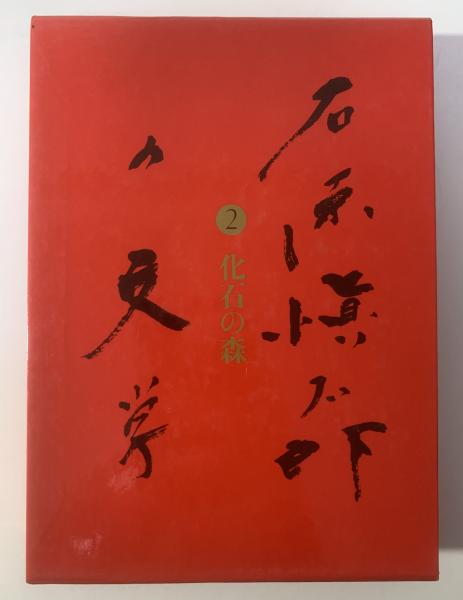 石原慎太郎
の文学
2
化石の森